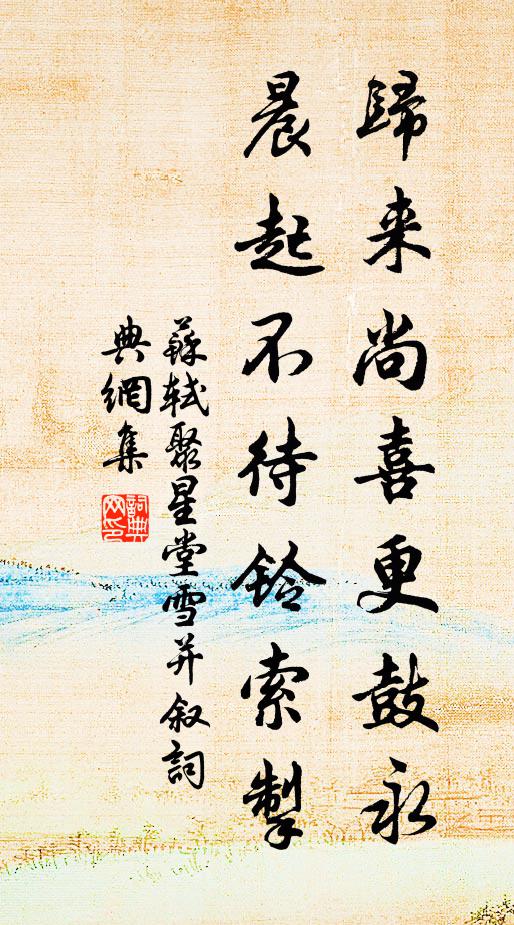 歸来尚喜更鼓永
晨起不待鈴索掣
蘇軾聚星堂雪并叙詞
典網集
詞典
网印